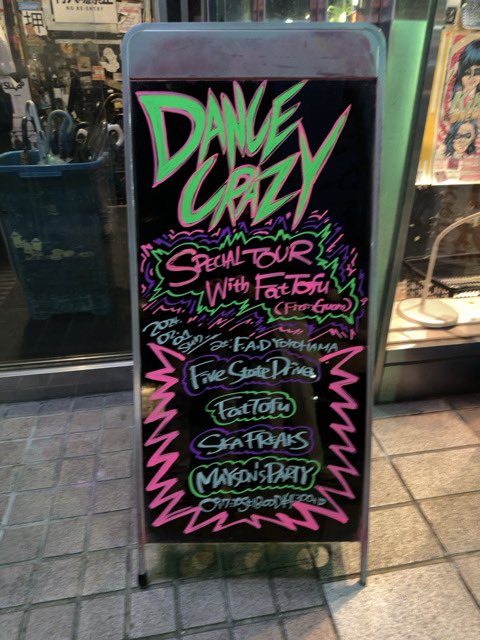 NO RE-ENTRY
DANCE
CRAZY
SPECIAL TOUR
With FatTofu
(From Guam)
2024.
07.07
SUN
at F.A.D YOKOHAMA
Five State Drive
FatTofu
SKA FREAKS
MAYSON'S PARTY